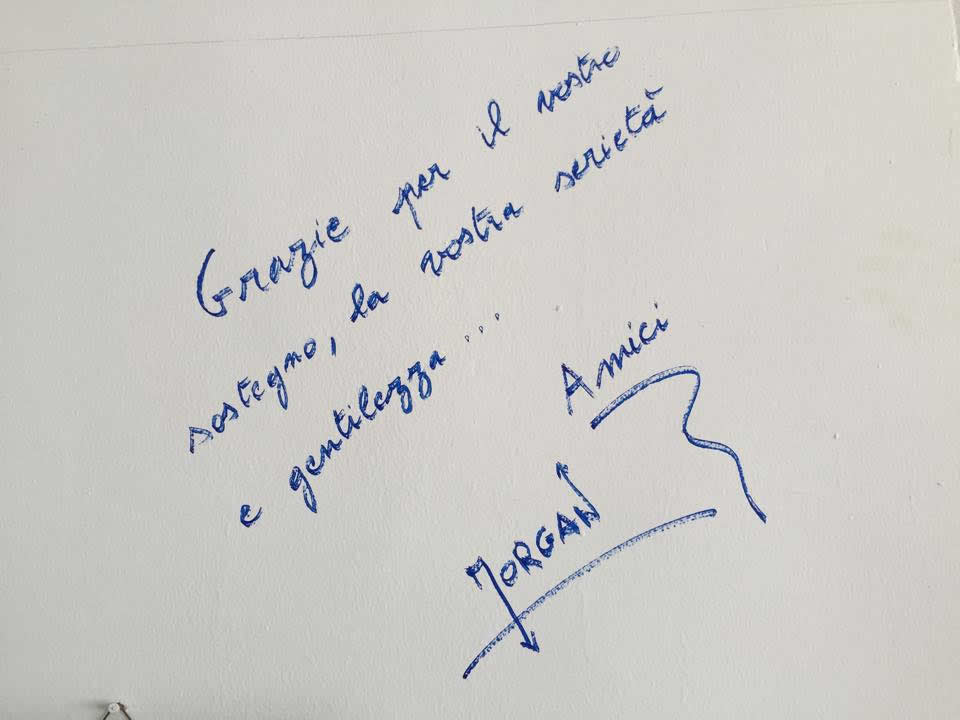 Grazie per il vostro
sostegno, la vostra serietà
e gentilezza...
Amici
MORGAN